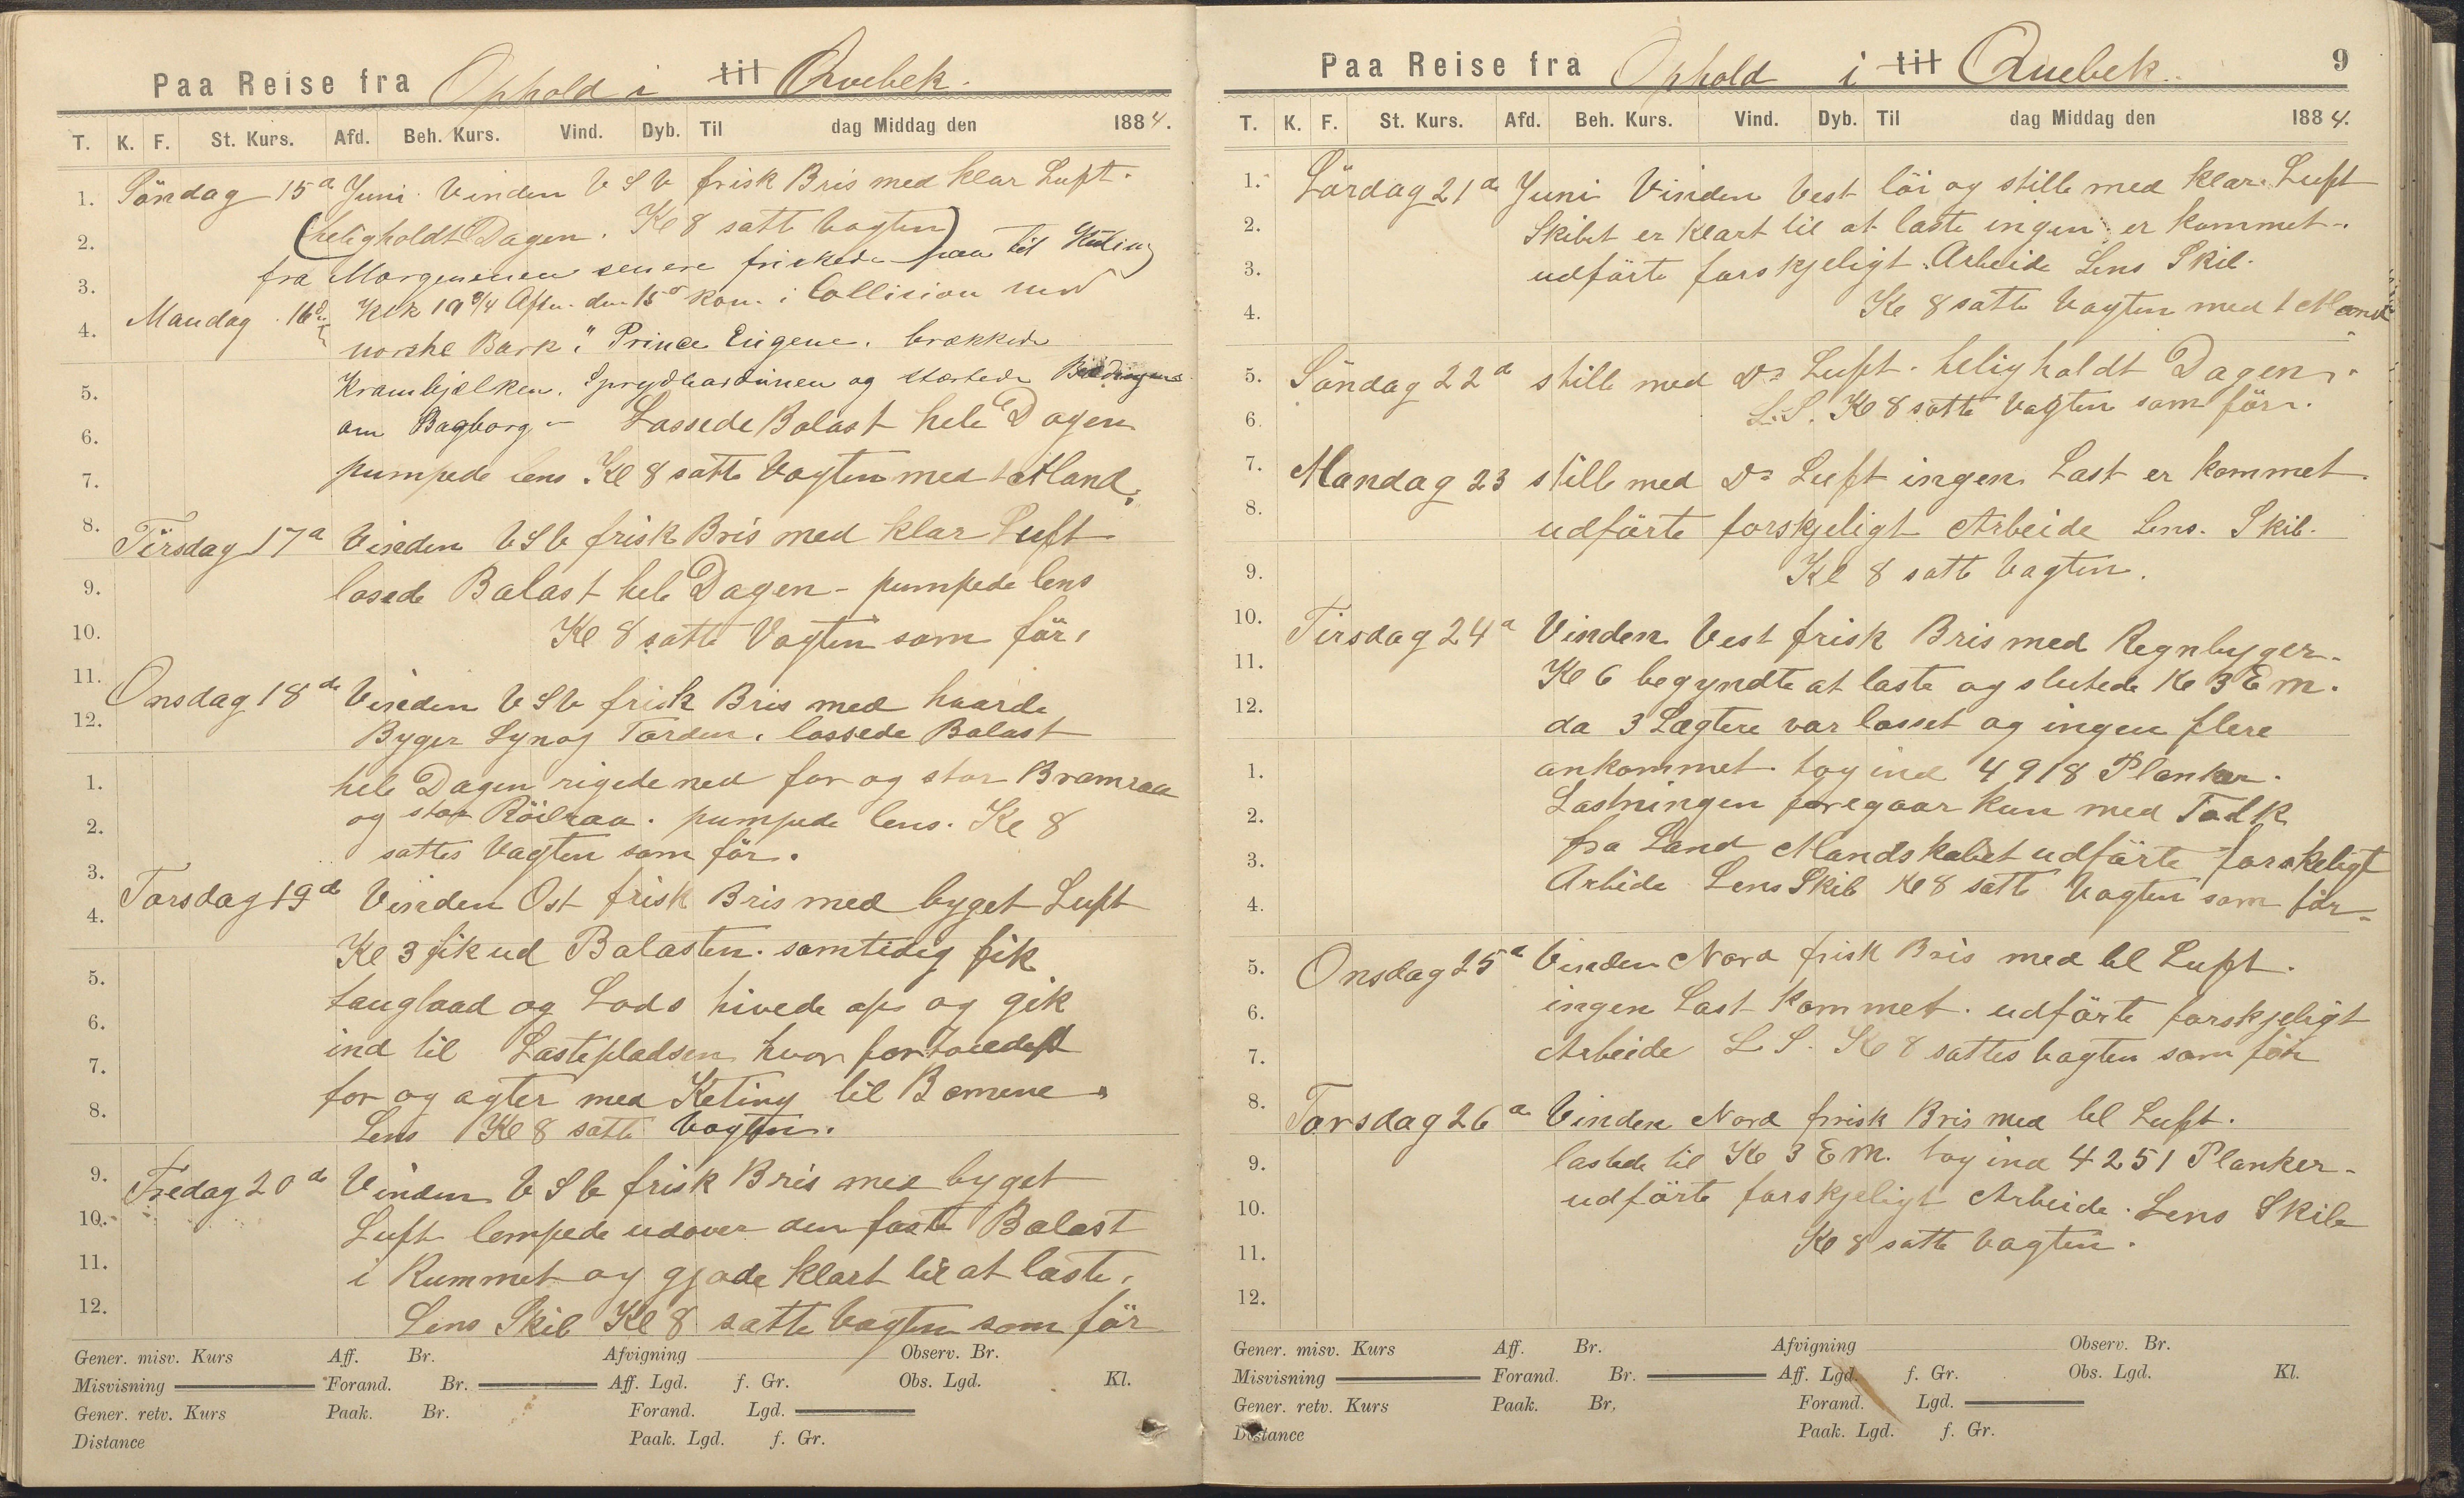 Paa Reise fra Ophold i til Qvebek.
T. K. F. St. Kurs. Afd. Beh. Kurs. Vind. Dyb. Til dag Middag den 1884.
1. Söndag 15d Juni. Vinden V S V frisk Bris med klar Luft.
2. (heligholdt Dagen. Kl 8 satte Vagten)
3. fra Morgenenen senere friskede paa til Kuling
4. Mandag 16d Klk 10 3/4 Aftn. den 15d kom i Collision med
norske Bark "Prince Eugene. brækkede
5. Krambjælken. Sprydbardunen og stærtede
6. om Bagborg - Lossede Balast hele Dagen
7. pumpede lens Kl 8 satte Vagten med 1 Mand.
8. Tirsdag 17d Vinden V S V frisk Bris med klar Luft
9. losede Balast hele Dagen - pumpede lens
10. Kl 8 satte Vagten som för.
11. Onsdag 18de Vinden V S V frisk Bris med haarde
12. Byger Lyn og Torden. lossede Balast
1. hele Dagen rigede ned for og stor Bramraa
2. og stor Röilraa. pumpede lens. Kl 8
3. sattes Vagten som för.
4. Torsdag 19de Vinden Ost frisk Bris med byget Luft
Kl 3 fik ud Balasten. samtidig fik
5. taugbaad og Lods hivede op og gik
6. ind til Lastepladsen hvor fortöiedest
7. for og agter med Keting til Bomene
8. Lens Kl 8 satte Vagten.
9. Fredag 20de Vinden V S V frisk Bris med byget
10. Luft lempede udover den faste Balast
11. i Rummet og gjode klart til at laste.
12. Lens Skib Kl 8 satte Vagten som för
Gener. misv. Kurs Aff. Br. Afvigning Observ. Br.
Misvisning Forand. Br. Aff. Lgd. f. Gr. Obs. Lgd. Kl.
Gener. retv. Kurs Paak. Br. Forand. Lgd.
Distance Paak. Lgd. f. Gr.
Paa Reise fra Ophold i til Quebek. 9
T. K. F. St. Kurs. Afd. Beh. Kurs. Vind. Dyb. Til dag Middag den 1884.
1. Lördag 21de Juni Vinden Vest löi og stille med klar Luft
2. Skibet er klart til at laste ingen er kommet.
3. udförte forskjeligt Arbeide Lens Skib.
4. Kl 8 satte Vagten med 1 Mand
5. Söndag 22d stille med Do Luft. heligholdt Dagen.
6. L. S. Kl 8 satte Vagten som för.
7. Mandag 23 stille med Do Luft ingen Last er kommet
8. udförte forskjeligt Arbeide Lens. Skib.
9. Kl 8 satte Vagten.
10. Tirsdag 24d Vinden Vest frisk Bris med Regnbyger.
11. Kl 6 begyndte at laste og slutede Kl 3 E m.
12. da 3 Lægtere var losset og ingen flere
1. ankommet. tog ind 4918 Planker.
2. Lastningen foregaar kun med Folk
3. fra Land Mandskabet udförte forskeligt
4. Arbide Lens Skib Kl 8 satte Vagten som för
5. Onsdag 25d Vinden Nord frisk Bris med kl Luft.
6. ingen Last kommet. udförte forskjeligt
7. Arbeide L S. Kl 8 sattes Vagten som för
8. Torsdag 26d Vinden Nord frisk Bris med kl Luft.
9. lastede til Kl 3 E M. tog ind 4251 Planker.
10. udförte forskjeligt Arbeide. Lens Skib
11. Kl 8 satte Vagten.
12.
Gener. misv. Kurs Aff. Br. Afvigning Observ. Br.
Misvisning Forand. Br. Aff. Lgd. f. Gr. Obs. Lgd. Kl.
Gener. retv. Kurs Paak. Br. Forand. Lgd.
Distance Paak. Lgd. f. Gr.